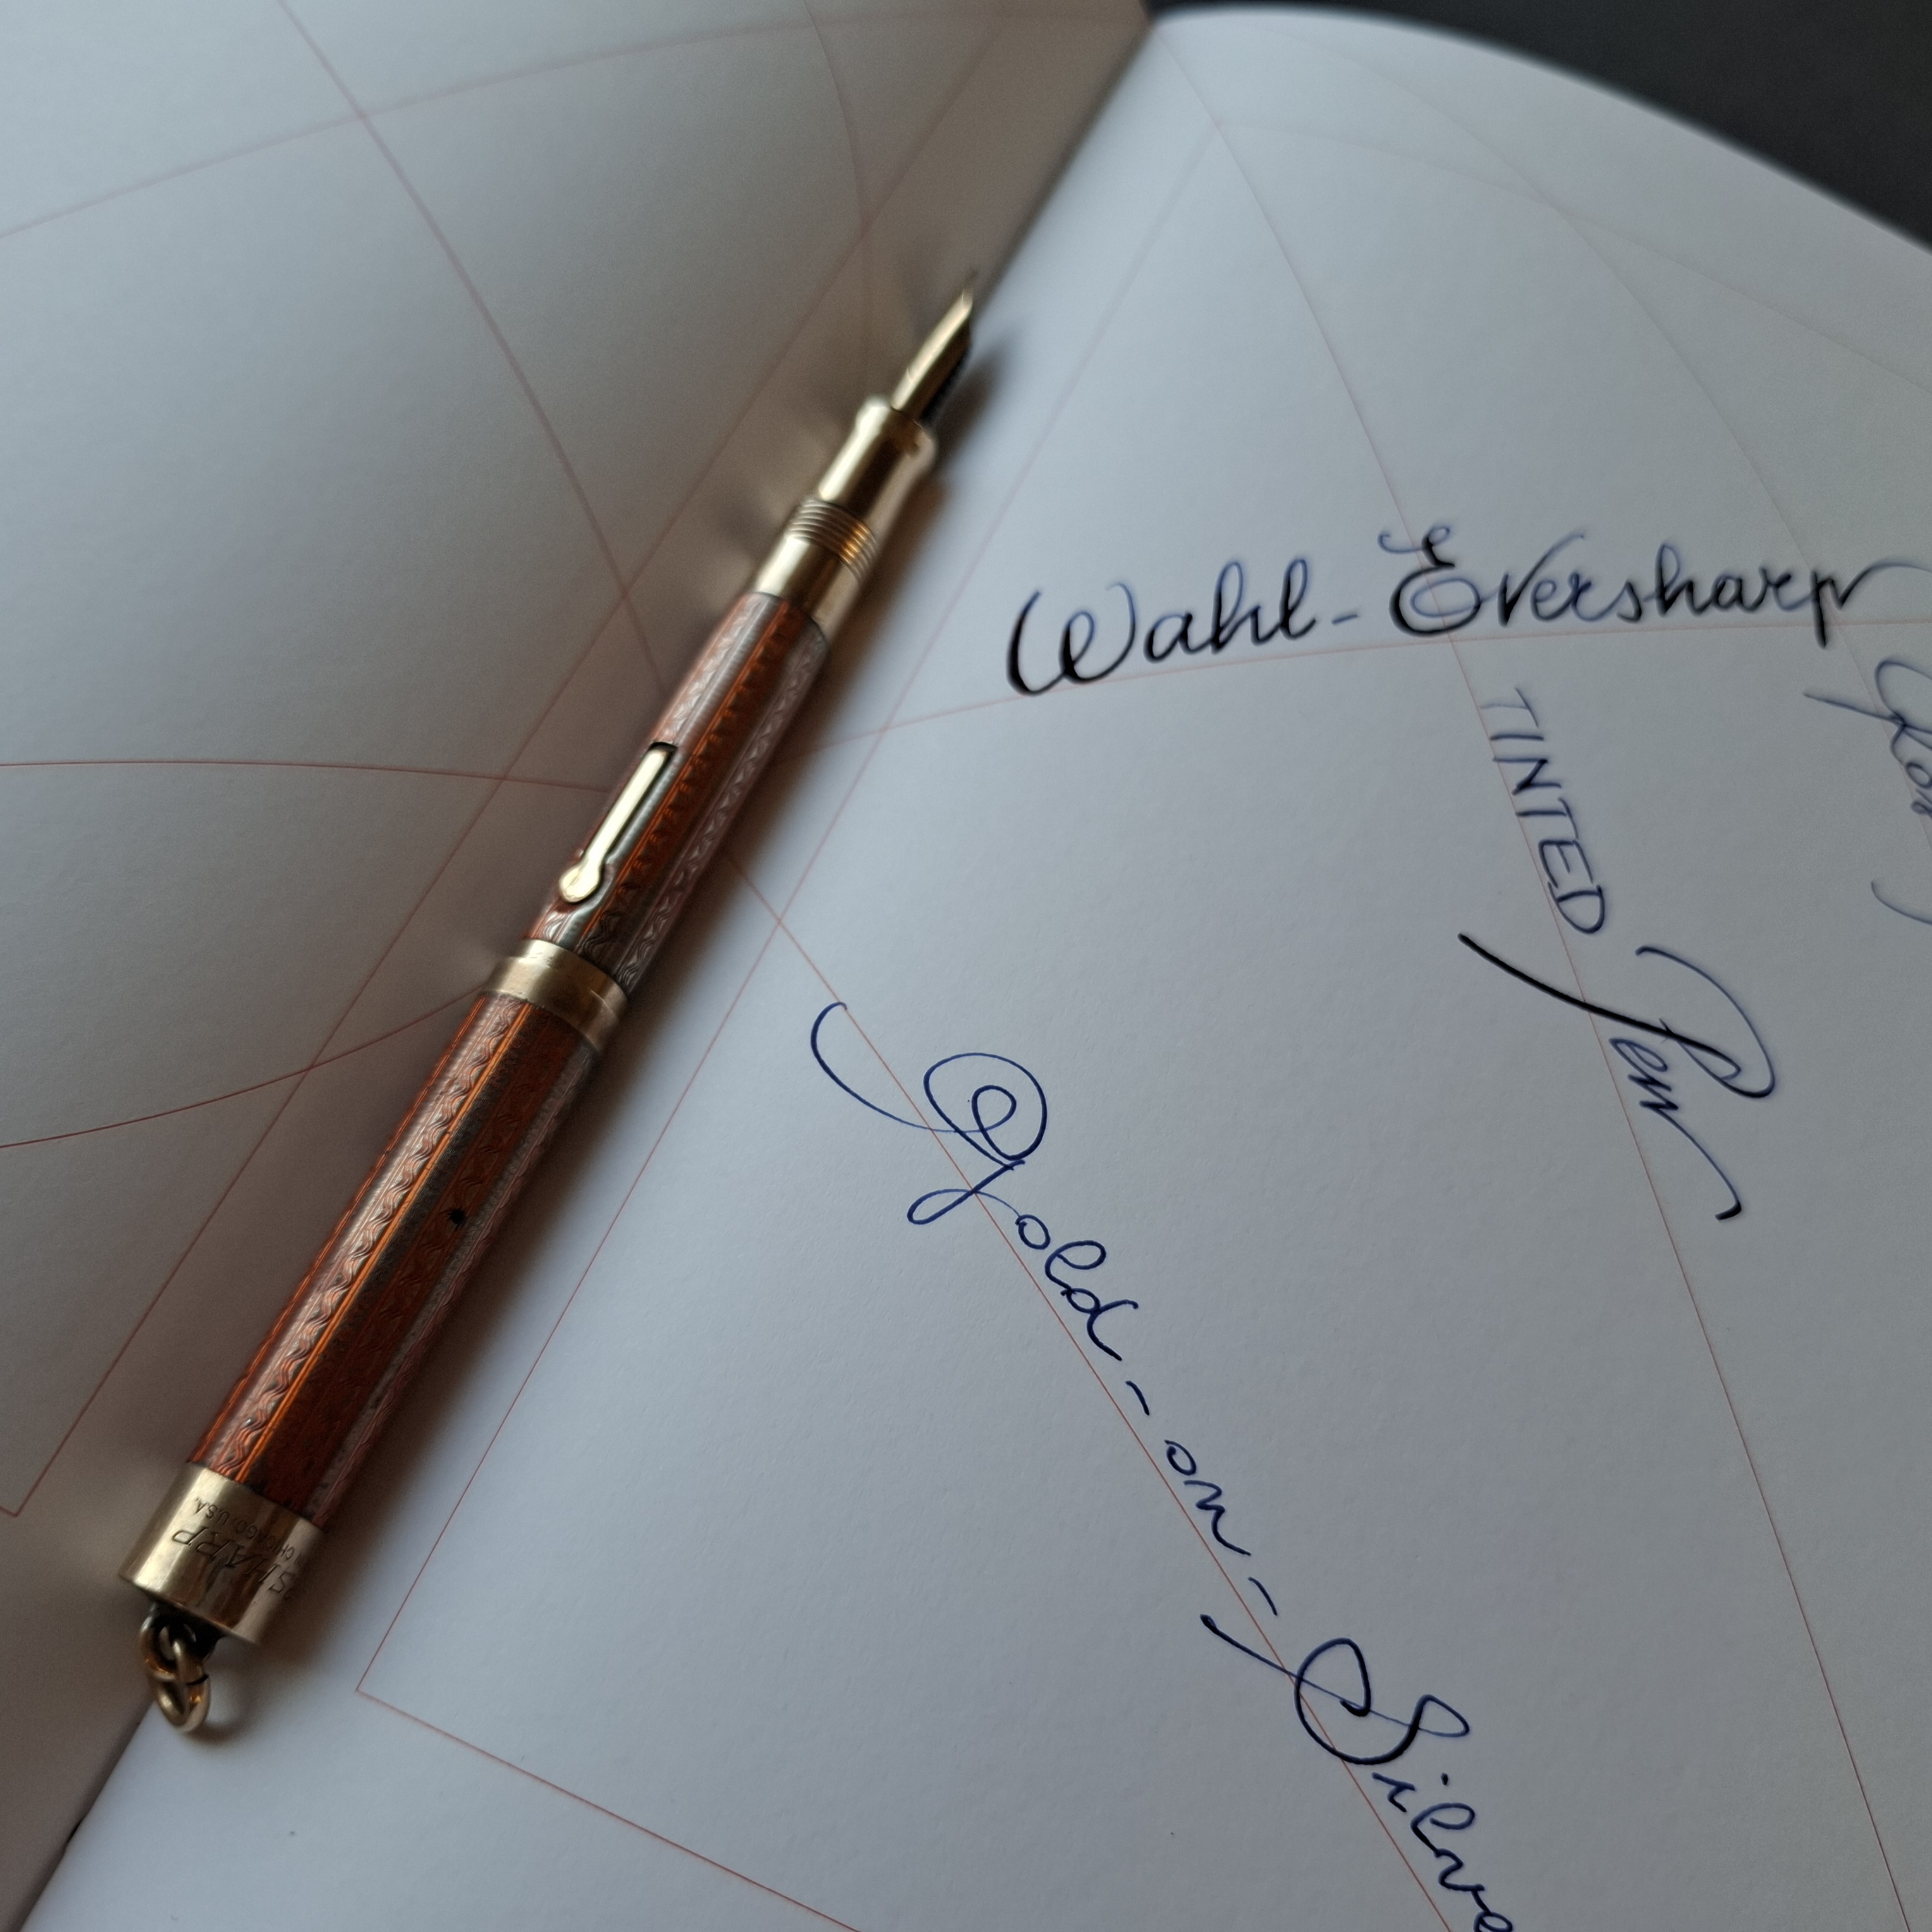 Wahl-Eversharp
TINTED
Pen
Gold-on-Silve
SHARP
CHICAGO, U.S.A.